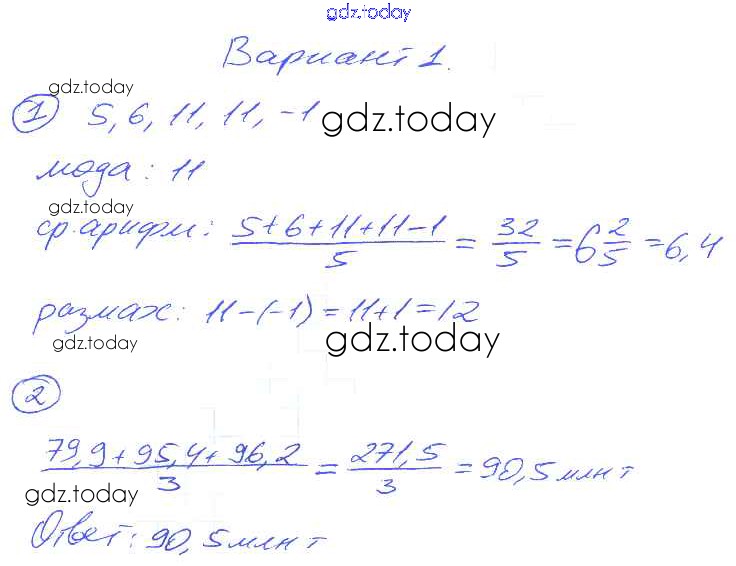 gdz.today
Вариант 1.
gdz.today
1 5, 6, 11, 11, -1 gdz.today
мода: 11
gdz.today
ср. арифм: (5+6+11+11-1)/5 = 32/5 = 6 2/5 = 6,4
размах: 11-(-1) = 11+1 = 12
gdz.today gdz.today
2
(79,9+95,4+96,2)/3 = 271,5/3 = 90,5 млн т
gdz.today gdz.today
Ответ: 90,5 млн т